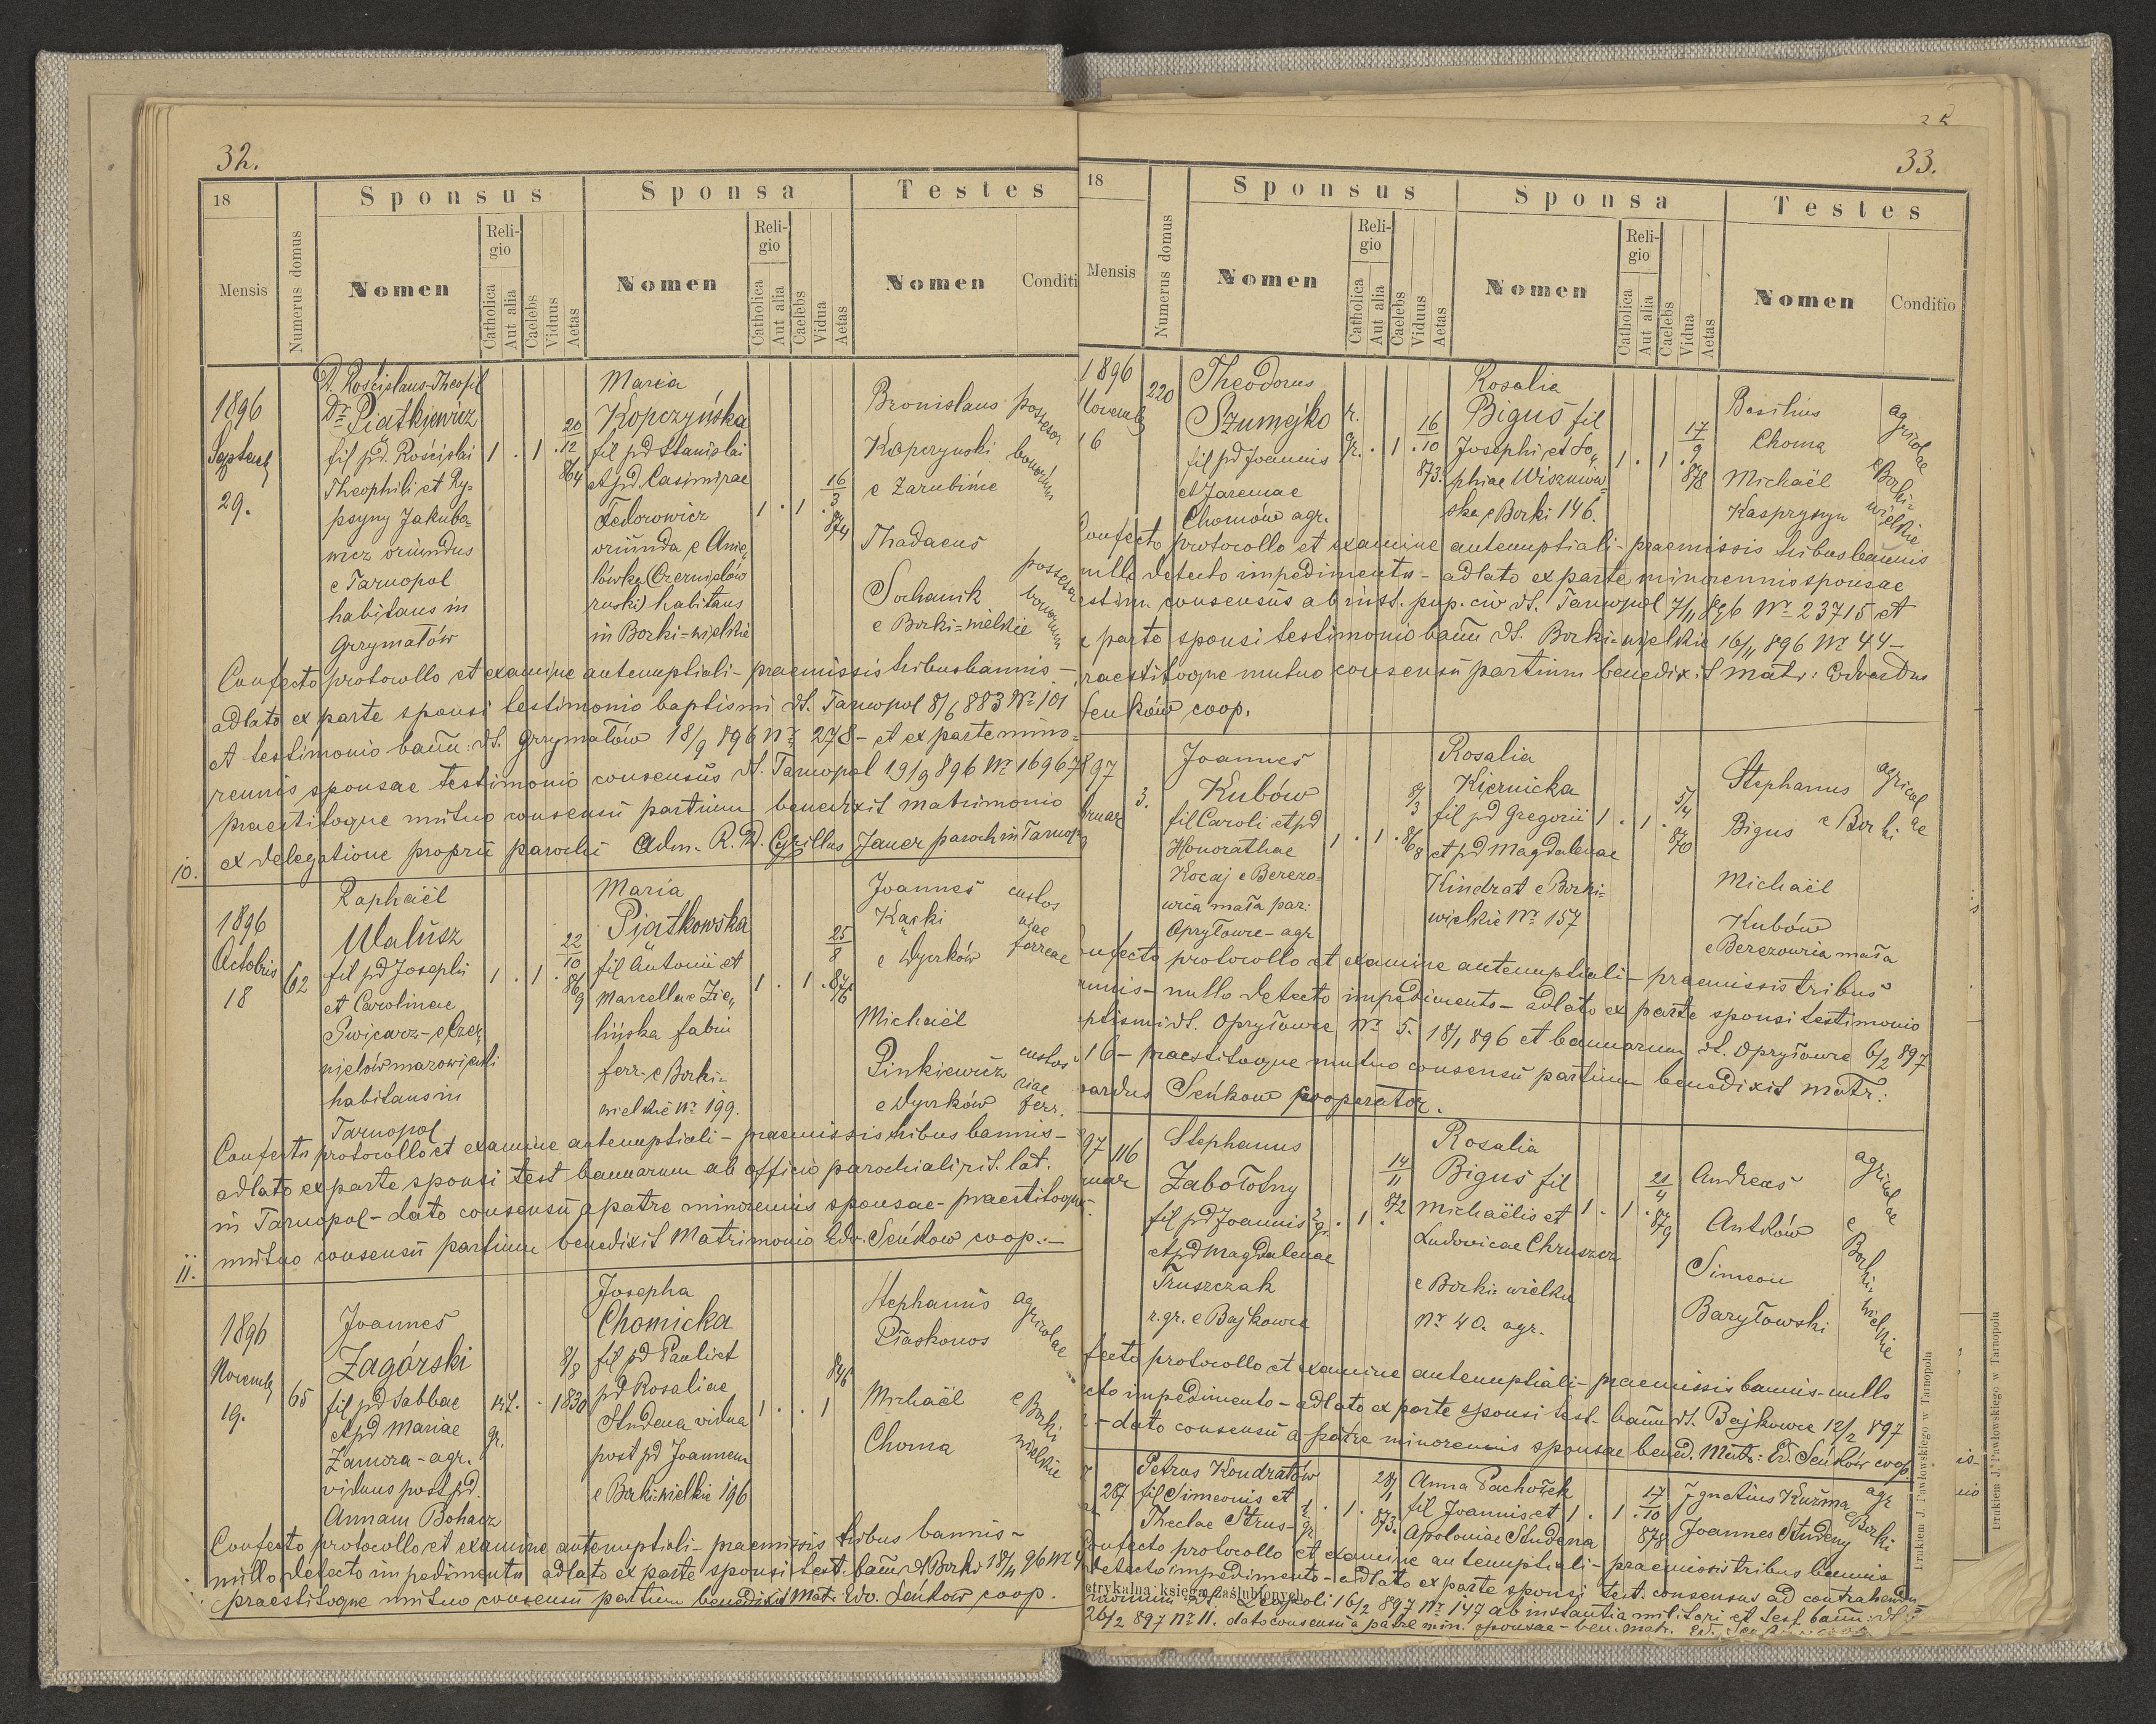 32.
18
Mensis
Numerus domus
Sponsus
Nomen
Religio
Catholica
Aut alia
Caelebs
Viduus
Aetas
Sponsa
Nomen
Religio
Catholica
Aut alia
Caelebs
Vidua
Aetas
Testes
Nomen
Conditi
1896
Septemb
29.
D. Rościslaus-Theofil
Dr Piątkiewicz
fil pd. Rościslai
Theophili et Ry-
psyny Jakubo-
wicz oriundus
e Tarnopol
habitans in
Grzymałów
1 . 1 .
20
12
864
Maria
Kopczyńska
fil pd Stanislai
et pd. Casimirae
Fedorowicz
oriunda e Anie„
lówka (Czernielów
ruski) habitans
in Borki=wielkie
1 . 1 .
16
3
874
Bronislaus possesor
Kopczynski bonorum
e Zarubińce
Thadaeus
possesor
Sochanik bonorum
e Borki=wielkie
Confecto protocollo et examine antenuptiali - praemissis tribus bannis -
adlato ex parte sponsi testimonio baptismi dt. Tarnopol 8/6 883 No 101
et testimonio bann: dt. Grzymałów 18/9 896 No 278 - et ex parte mino-
rennis sponsae testimonio consensus dt. Tarnopol 19/9 896 No 16967
praestitoque mutuo consensu partium benedixit matrimonio
ex delegatione proprii parochi Adm. R. D. Cyrillus Janer paroch in Tarnop
10.
1896
Octobris
18
62
Raphaël
Walusz
fil pd Josephi
et Carolinae
Swicarz - e Czer„
nielów mazowiecki
habitans in
Tarnopol
1 . 1 .
22
10
869
Maria
Piątkowska
fil Antonii et
Marcellae Zie„
lińska fabri
ferr. e Borki-
wielkie No 199.
1 . 1 .
25
8
876
Joannes custos
Kącki viae
e Dyrków ferreae
Michaël
Pinkiewicz custos
viae
e Dyrków ferr.
Confecto protocollo et examine antenuptiali - praemissis tribus bannis -
adlato ex parte sponsi test bannarum ab officio parochiali rit. lat.
in Tarnopol - dato consensu a patre minorennis sponsae - praestitoque
mutuo consensu partium benedixit Matrimonio Edv. Seńkow coop. -
11.
1896
Novemb
19.
65
Joannes
Zagórski
fil pd Sabbae
et pd Mariae
Zamora - agr.
viduus post pd.
Annam Bohacz
rit.
gr.
8/8
1830
Josepha
Chomicka
fil pd Pauli et
pd Rosaliae
Studena vidua
post pd Joannem
e Borki=wielkie 196
1 . . 1
846
Stephanus agricolae
Ptaskonos
Michaël e Borki
Choma wielkie
Confecto protocollo et examine antenuptiali - praemissis tribus bannis -
nullo detecto impedimento adlato ex parte sponsi test. bann dt Borki 18/11 96 No 4
praestitoque mutuo consensu partium benedixit Mat: Edv. Seńkow coop.
33.
18
Mensis
Numerus domus
Sponsus
Nomen
Religio
Catholica
Aut alia
Caelebs
Viduus
Aetas
Sponsa
Nomen
Religio
Catholica
Aut alia
Caelebs
Vidua
Aetas
Testes
Nomen
Conditio
1896
Novemb
16
220
Theodorus
Szumejko
fil pd Joannis
et Jaremae
Chomów agr.
r.
gr. . 1 .
16
10
873.
Rosalia
Bigus fil
Josephi et So„
phiae Wiszniow=
ska e Borki 146.
1 . 1 .
17
9
878
Basilius agricolae
Choma
Michaël e Borki-
Kasprysyn wielkie
Confecto protocollo et examine antenuptiali - praemissis tribus bannis
nullo detecto impedimento - adlato ex parte minorennis sponsae
estim. consensus ab inst. pup. civ dt. Tarnopol 7/11 896 No 23715 et
e parte sponsi testimonio bann dt. Borki-wielkie 16/11 896 No 44 -
raestitoque mutuo consensu partium benedixit matr: Edvardus
Seńków coop.
897
bruar
3.
Joannes
Kubów
fil Caroli et pd
Honorathae
Kocaj e Berezo-
wica mała par:
Opryłowce - agr
1 . 1 .
8/3
868
Rosalia
Kiernicka
fil pd Gregorii
et pd Magdalenae
Kindrat e Borki-
wielkie No 157
1 . 1 .
5/4
870
Stephanus agricolae
Bigus e Borki
Michaël
Kubów
e Berezowica mała
onfecto protocollo et examine antenuptiali - praemissis tribus
nnis - nullo detecto impedimento - adlato ex parte sponsi testimonio
ptismi dt. Opryłowce No 5. 18/1 896 et bannarum dt. Opryłowce 6/2 897
16 - praestitoque mutuo consensu partium benedixit matr:
vardus Seńkow cooperator.
97
ruar
116
Stephanus
Zabołotny
fil pd Joannis
et pd Magdalenae
Truszczak
r. gr. e Bajkowce
r.
gr. . 1 .
14
11
872
Rosalia
Bigus fil
Michaëlis et
Ludovicae Chruszcz
e Borki-wielkie
No 40. agr.
1 . 1 .
21
4
879
Andreas agricolae
Antków e
Simeon Borki-
Baryłowski wielkie
fecto protocollo et examine antenuptiali - praemissis bannis - nullo
cto impedimento - adlato ex parte sponsi test. bann dt. Bajkowce 12/2 897
- dato consensu a patre minorennis sponsae bened. Matr: Ed. Seńków coop
287
Petrus Kondratów
fil Simeonis et
Theclae Strus-
r.
gr. . 1 .
28/
11
873.
Anna Pachołek
fil Joannis et
Apoloniae Studena
1 . 1 .
17
10
878
Ignatius Kuźma agr
e Borki
Joannes Studeny
Confecto protocollo et examine antenuptiali - praemissis tribus bannis
detecto impedimento - adlato ex parte sponsi test. consensus ad contrahendu
etrykalna: księga zaślubionych
Leopoli 16/2 897 No 147 ab instantia militari et test. bann: dt
26/2 897 No 11. dato consensu a patre min. sponsae - ben. matr. Ed.
Drukiem J. Pawłowskiego w Tarnopolu
Drukiem J. Pawłowskiego w Tarnopolu